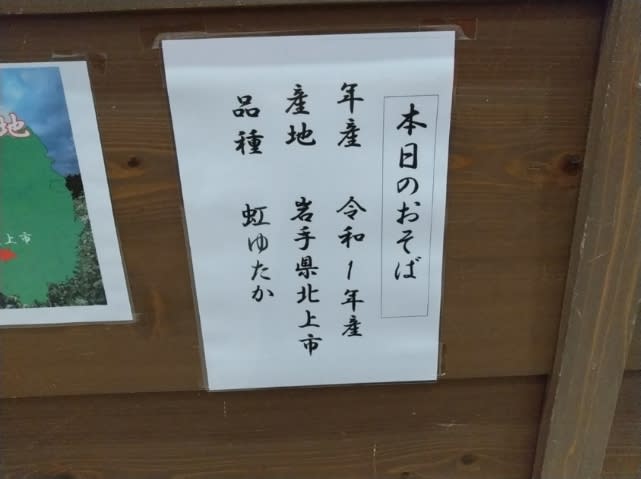 本日のおそば
年産 令和1年産
産地 岩手県北上市
品種 虹ゆたか
地
上市